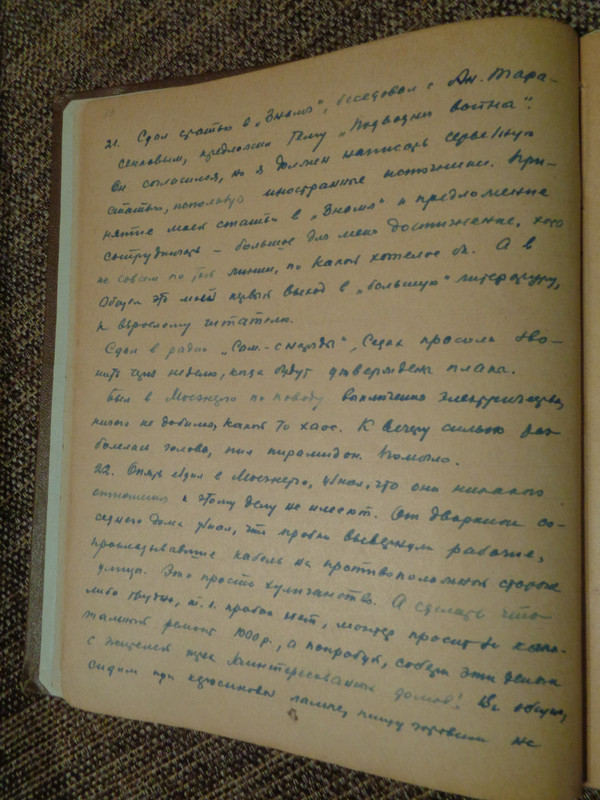 21. Сдал статью в „Знамя“, беседовал с Ан. Тара-
сенковым, предложил тему „Подводная война“.
Он согласился, но я должен написать серьезную
статью, используя иностранные источники. При-
нятие моей статьи в „Знамя“ и предложение
сотрудничать – большое для меня достижение, хотя
не совсем по той линии, по какой хотелось бы. А в
общем это мой первый выход в „большую“ литературу,
к взрослому читателю.
Сдал в радио „Сам.-снаряды“, Седак просила зво-
нить через неделю, когда будут утверждены планы.
Был в Мосэнерго по поводу выключения электричества,
ничего не добился, какой то хаос. К вечеру сильно раз-
болелась голова, пил пирамидон. Помогло.
22. Опять ездил в Мосэнерго, узнал, что они никакого
отношения к этому делу не имеют. От дворника со-
седнего дома узнал, что пробки вывернули рабочие,
прокладывавшие кабель на противоположной стороне
улицы. Это просто хулиганство. А сделать что
либо трудно, т. к. пробок нет, монтер просит за капи-
тальный ремонт 1000 р., а попробуй, собери эти деньги
с жителей трех заинтересованных домов! Вв общем,
сидим при керосиновой лампе, пищу готовим не